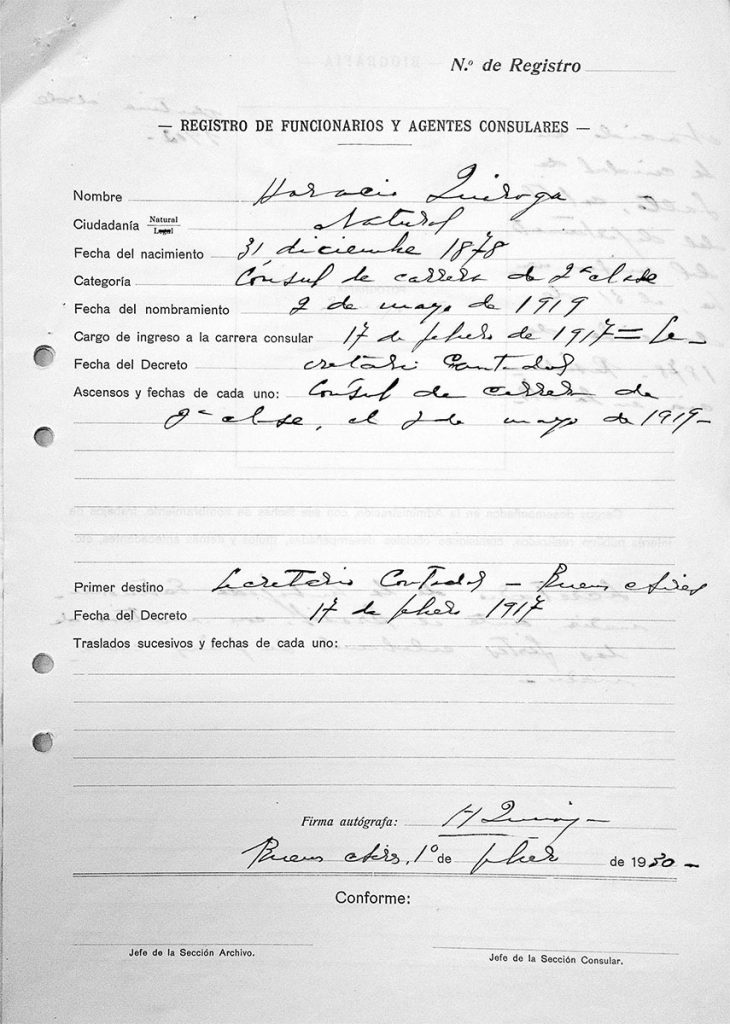 N.º de Registro
— REGISTRO DE FUNCIONARIOS Y AGENTES CONSULARES —
Nombre Horacio Quiroga
Ciudadanía Natural Legal Natural
Fecha del nacimiento 31 diciembre 1878
Categoría Cónsul de carrera de 2ª clase
Fecha del nombramiento 2 de mayo de 1919
Cargo de ingreso a la carrera consular 17 de febrero de 1917 = Se-
Fecha del Decreto cretario Contador
Ascensos y fechas de cada uno: Cónsul de carrera de
2ª clase, el 2 de mayo de 1919-
Primer destino Secretario Contador - Buenos Aires
Fecha del Decreto 17 de febrero 1917
Traslados sucesivos y fechas de cada uno:
Firma autógrafa: H Quiroga
Buenos Aires, 1º de febrero de 1930-
Conforme:
Jefe de la Sección Archivo.
Jefe de la Sección Consular.